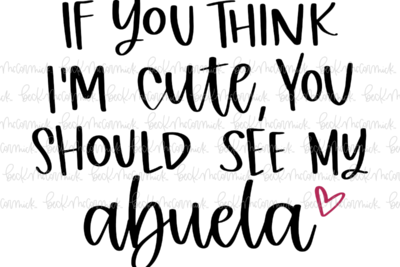 IF YOU THINK
I'M cute, YOU
SHOULD SEE MY
abuela